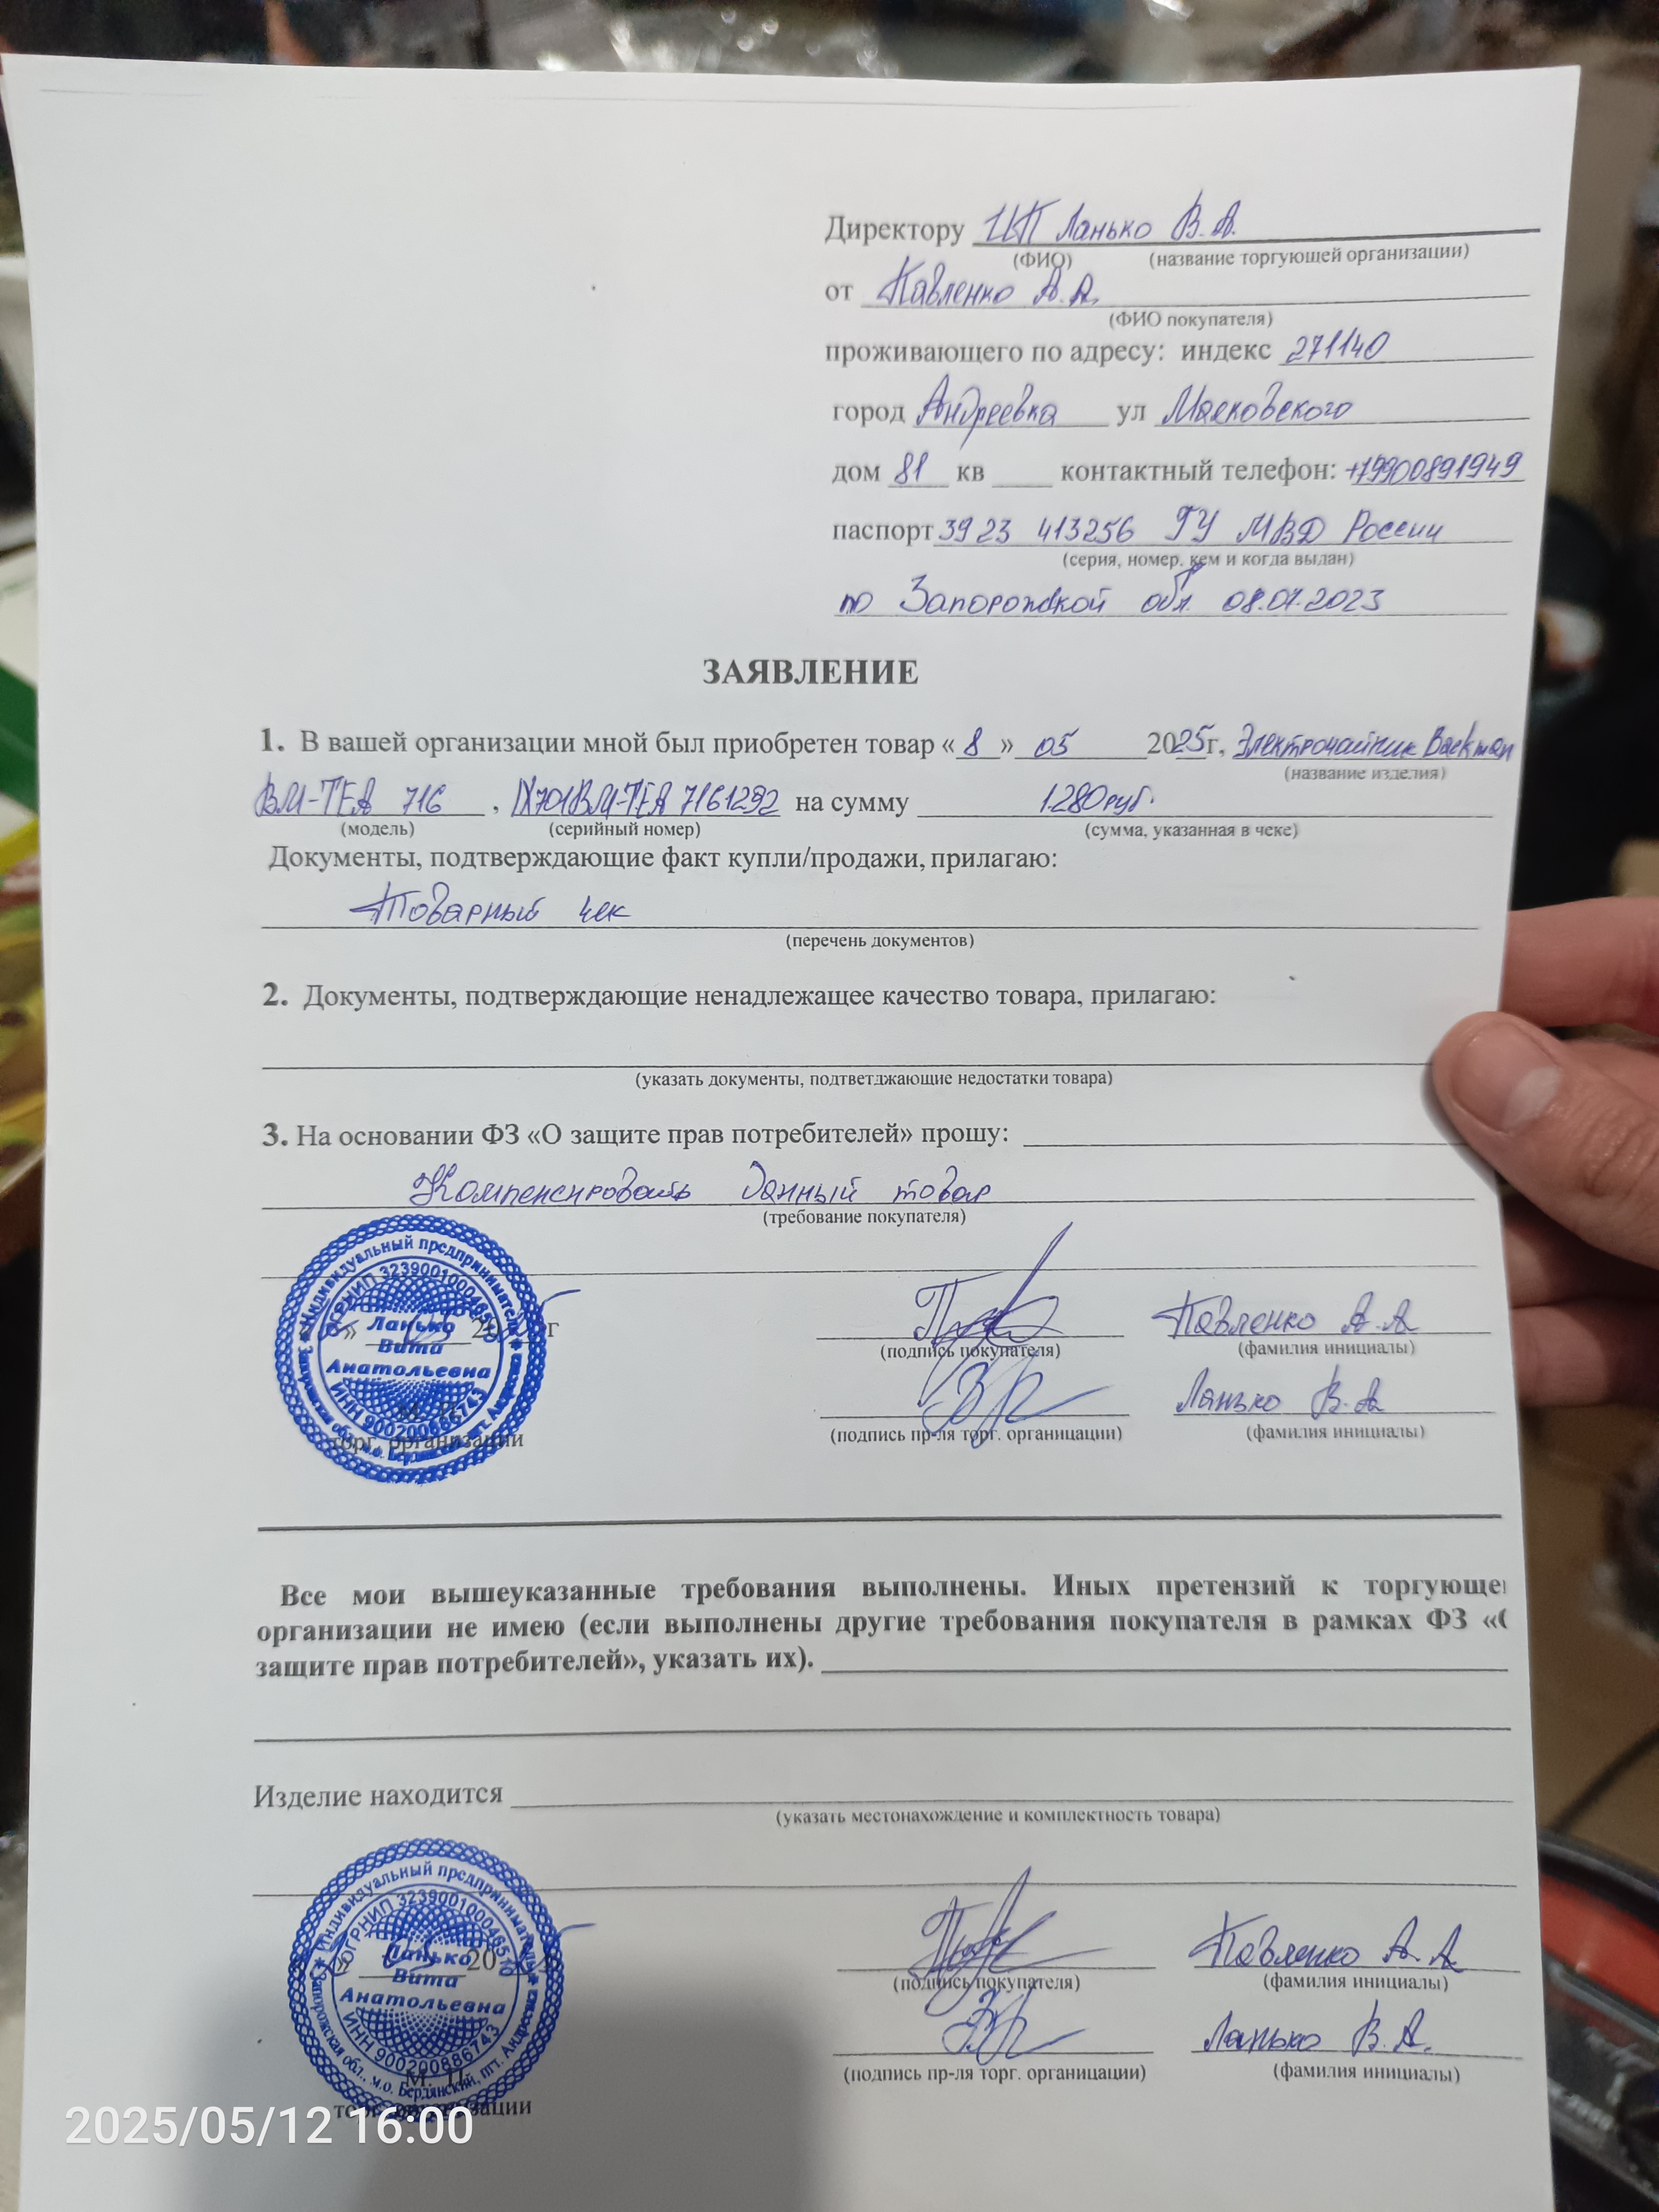 Директору ИП Ланько В.А.
(ФИО) (название торгующей организации)
от Павленко А.А.
(ФИО покупателя)
проживающего по адресу: индекс 271140
город Андреевка ул Маяковского
дом 81 кв ____ контактный телефон: +79900891949
паспорт 39 23 413256 ГУ МВД России
(серия, номер, кем и когда выдан)
по Запорожской обл. 08.07.2023
ЗАЯВЛЕНИЕ
1. В вашей организации мной был приобретен товар « 8 » 05 2025г, Электрочайник Backman
(название изделия)
BM-TEA 716 , IX701BM-TEA 7161292 на сумму 1280руб.
(модель) (серийный номер) (сумма, указанная в чеке)
Документы, подтверждающие факт купли/продажи, прилагаю:
Товарный чек
(перечень документов)
2. Документы, подтверждающие ненадлежащее качество товара, прилагаю:
(указать документы, подтветджающие недостатки товара)
3. На основании ФЗ «О защите прав потребителей» прошу:
Компенсировать данный товар
(требование покупателя)
Индивидуальный предприниматель
Ланько
Вита
Анатольевна
ИНН 900200886743
05 20 г
Павленко А.А
(подпись покупателя) (фамилия инициалы)
Ланько В.А
торг. организации (подпись пр-ля торг. органицации) (фамилия инициалы)
Все мои вышеуказанные требования выполнены. Иных претензий к торгующе
организации не имею (если выполнены другие требования покупателя в рамках ФЗ «
защите прав потребителей», указать их).
Изделие находится
(указать местонахождение и комплектность товара)
Индивидуальный предприниматель
ОГРНИП 323900100046510
Ланько
Вита
Анатольевна
ИНН 900200886743
Запорожская обл., м.о. Бердянский, пгт. Андреевка
05 20
Павленко А.А
(подпись покупателя) (фамилия инициалы)
Ланько В.А.
М. П.
торг. организации (подпись пр-ля торг. органицации) (фамилия инициалы)
2025/05/12 16:00